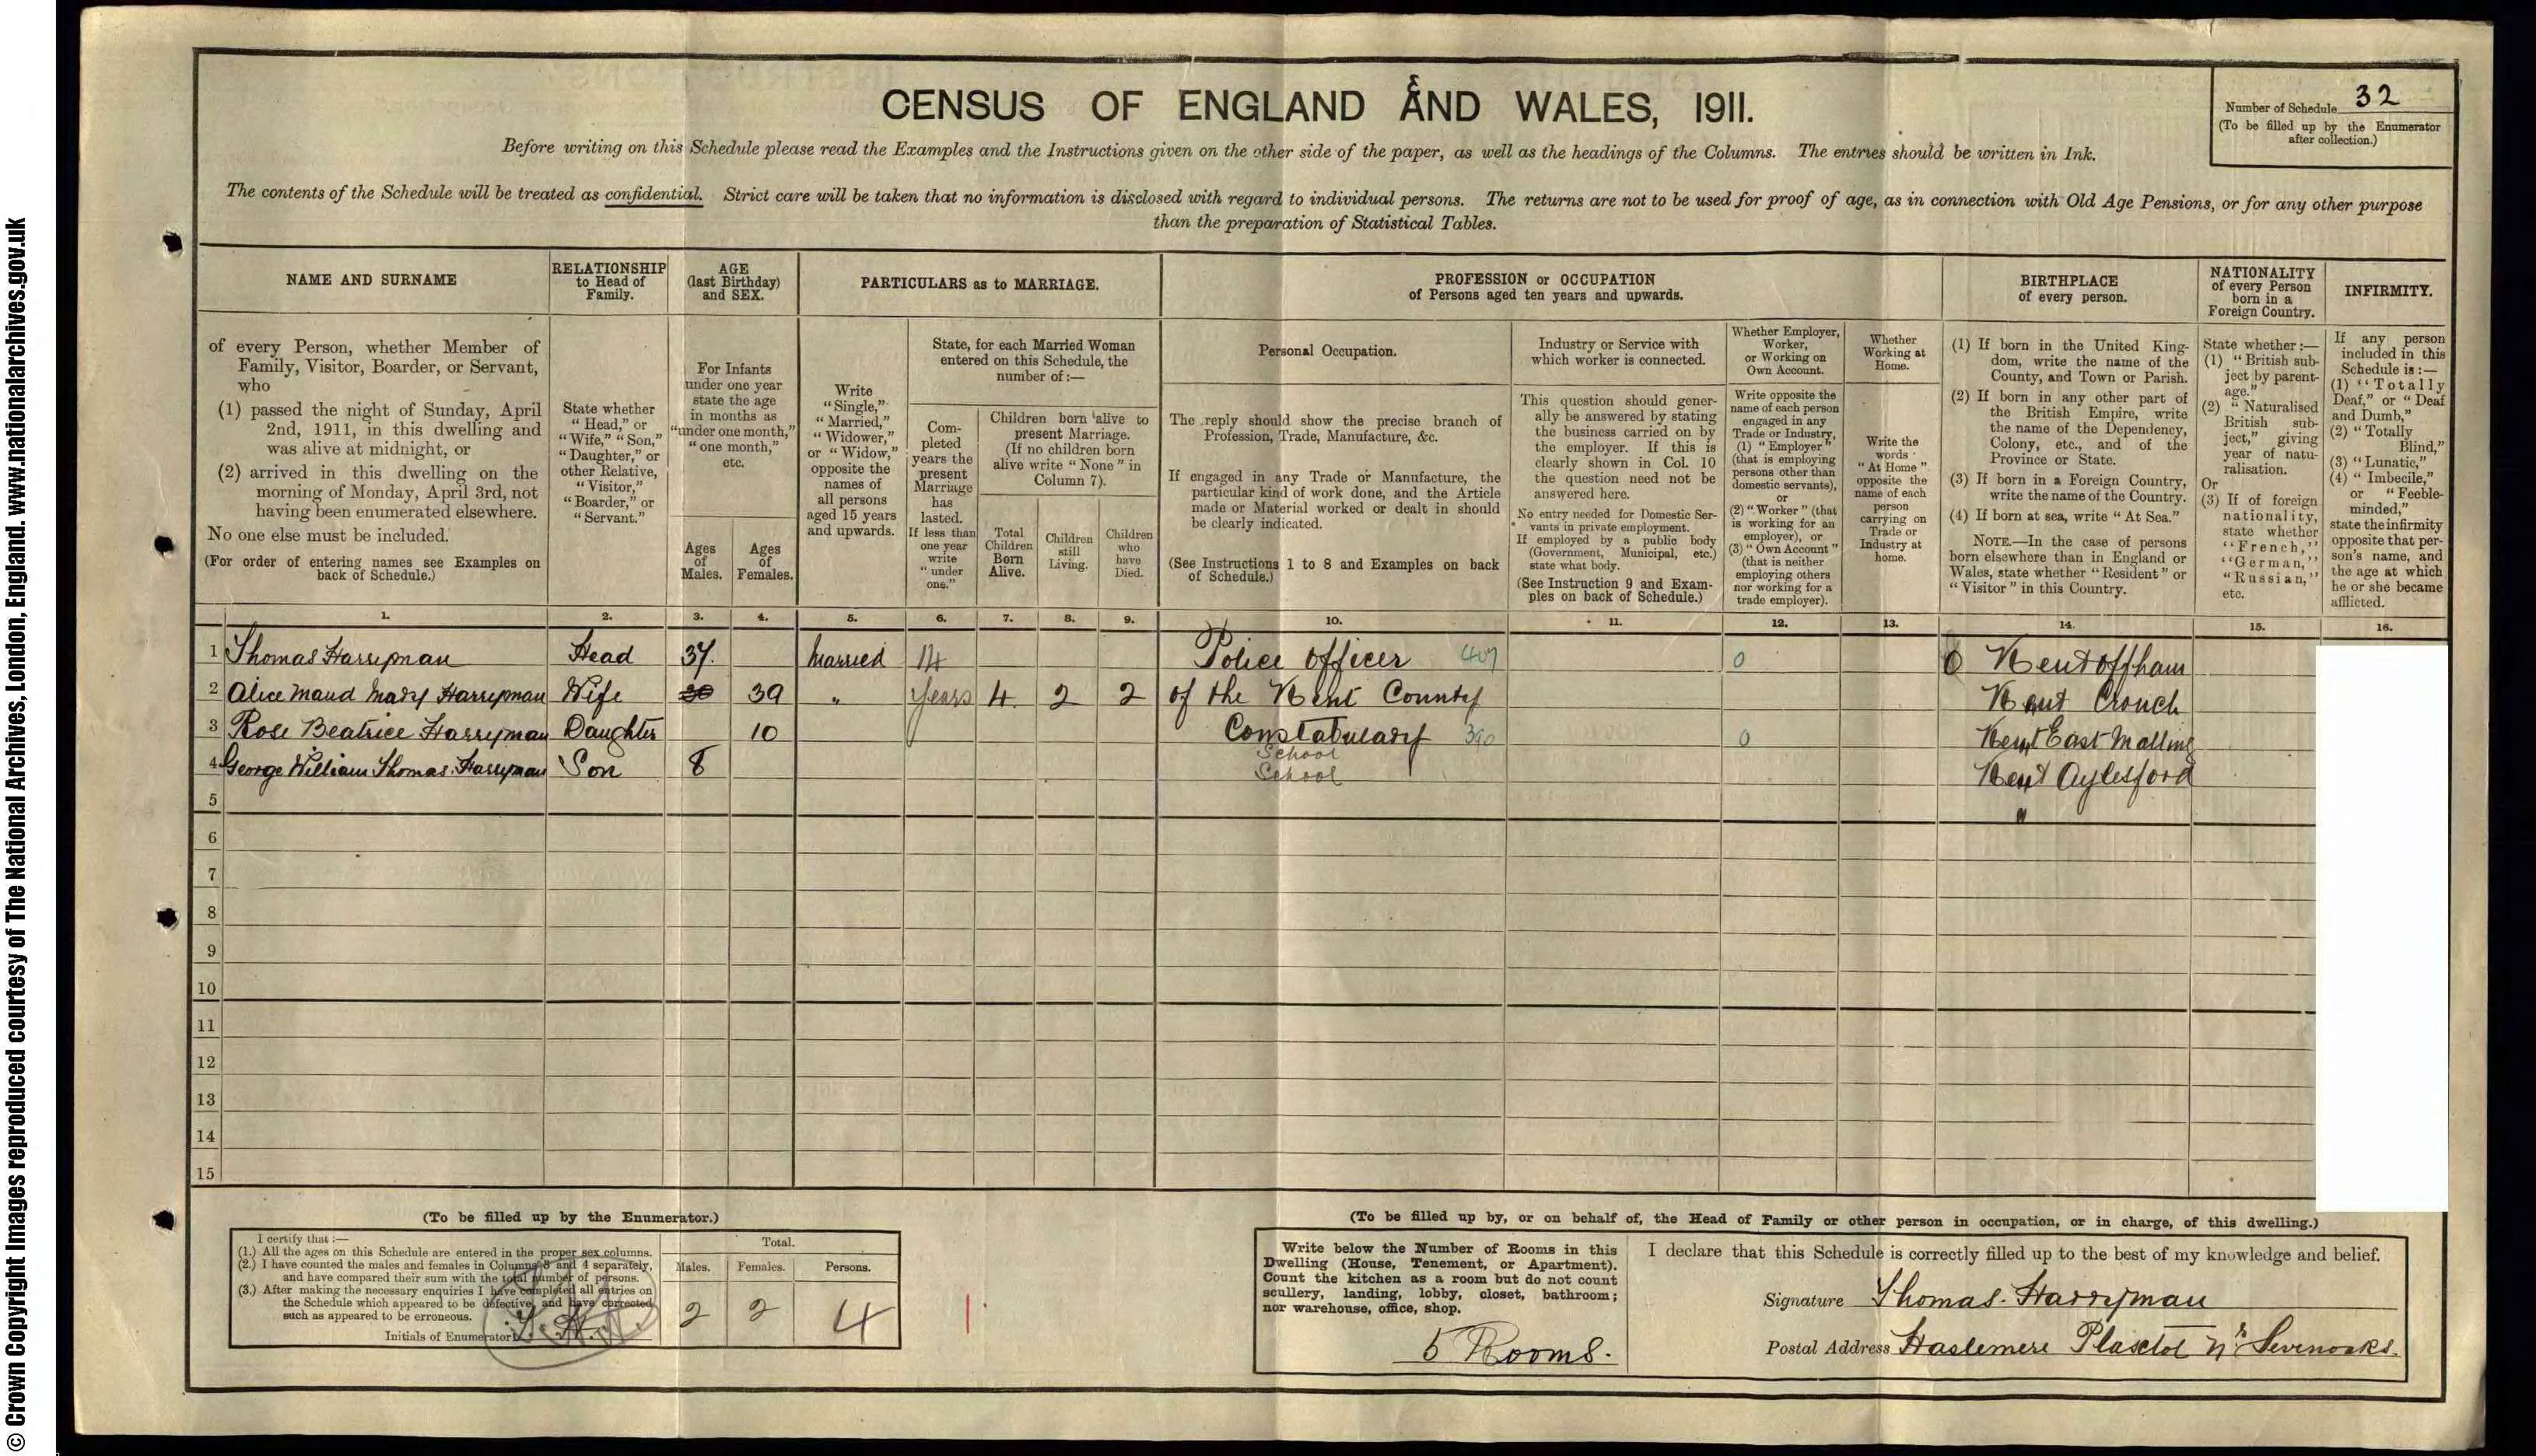 © Crown Copyright Images reproduced courtesy of The National Archives, London, England. www.nationalarchives.gov.uk
CENSUS OF ENGLAND AND WALES, 1911.
Number of Schedule 32
(To be filled up by the Enumerator
after collection.)
Before writing on this Schedule please read the Examples and the Instructions given on the other side of the paper, as well as the headings of the Columns. The entries should be written in Ink.
The contents of the Schedule will be treated as confidential. Strict care will be taken that no information is disclosed with regard to individual persons. The returns are not to be used for proof of age, as in connection with Old Age Pensions, or for any other purpose
than the preparation of Statistical Tables.
NAME AND SURNAME
RELATIONSHIP
to Head of
Family.
AGE
(last Birthday)
and SEX.
PARTICULARS as to MARRIAGE.
PROFESSION or OCCUPATION
of Persons aged ten years and upwards.
BIRTHPLACE
of every person.
NATIONALITY
of every Person
born in a
Foreign Country.
INFIRMITY.
of every Person, whether Member of
Family, Visitor, Boarder, or Servant,
who
(1) passed the night of Sunday, April
2nd, 1911, in this dwelling and
was alive at midnight, or
(2) arrived in this dwelling on the
morning of Monday, April 3rd, not
having been enumerated elsewhere.
No one else must be included.
(For order of entering names see Examples on
back of Schedule.)
State whether
"Head," or
"Wife," "Son,"
"Daughter," or
other Relative,
"Visitor,"
"Boarder," or
"Servant."
For Infants
under one year
state the age
in months as
"under one month,"
"one month,"
etc.
Ages
of
Males.
Ages
of
Females.
Write
"Single,"
"Married,"
"Widower,"
or "Widow,"
opposite the
names of
all persons
aged 15 years
and upwards.
State, for each Married Woman
entered on this Schedule, the
number of:—
Com-
pleted
years the
present
Marriage
has
lasted.
If less than
one year
write
"under
one."
Children born alive to
present Marriage.
(If no children born
alive write "None" in
Column 7).
Total
Children
Born
Alive.
Children
still
Living.
Children
who
have
Died.
Personal Occupation.
The reply should show the precise branch of
Profession, Trade, Manufacture, &c.
If engaged in any Trade or Manufacture, the
particular kind of work done, and the Article
made or Material worked or dealt in should
be clearly indicated.
(See Instructions 1 to 8 and Examples on back
of Schedule.)
Industry or Service with
which worker is connected.
This question should gener-
ally be answered by stating
the business carried on by
the employer. If this is
clearly shown in Col. 10
the question need not be
answered here.
No entry needed for Domestic Ser-
vants in private employment.
If employed by a public body
(Government, Municipal, etc.)
state what body.
(See Instruction 9 and Exam-
ples on back of Schedule.)
Whether Employer,
Worker,
or Working on
Own Account.
Write opposite the
name of each person
engaged in any
Trade or Industry,
(1) "Employer"
(that is employing
persons other than
domestic servants),
or
(2) "Worker" (that
is working for an
employer), or
(3) "Own Account"
(that is neither
employing others
nor working for a
trade employer).
Whether
Working at
Home.
Write the
words
"At Home"
opposite the
name of each
person
carrying on
Trade or
Industry at
home.
(1) If born in the United King-
dom, write the name of the
County, and Town or Parish.
(2) If born in any other part of
the British Empire, write
the name of the Dependency,
Colony, etc., and of the
Province or State.
(3) If born in a Foreign Country,
write the name of the Country.
(4) If born at sea, write "At Sea."
NOTE.—In the case of persons
born elsewhere than in England or
Wales, state whether "Resident" or
"Visitor" in this Country.
State whether:—
(1) "British sub-
ject by parent-
age."
(2) "Naturalised
British sub-
ject," giving
year of natu-
ralisation.
Or
(3) If of foreign
nationality,
state whether
"French,"
"German,"
"Russian,"
etc.
If any person
included in this
Schedule is:—
(1) "Totally
Deaf," or "Deaf
and Dumb,"
(2) "Totally
Blind,"
(3) "Lunatic,"
(4) "Imbecile,"
or "Feeble-
minded,"
state the infirmity
opposite that per-
son's name, and
the age at which
he or she became
afflicted.
1. 2. 3. 4. 5. 6. 7. 8. 9. 10. 11. 12. 13. 14. 15. 16.
1 Thomas Harryman Head 37. Married 14 Police Officer 407 0 Kent Offham
2 Alice Maud Mary Harryman Wife 39 " Years 4 2 2 of the Kent County Kent Crouch
3 Rose Beatrice Harryman Daughter 10 Constabulary 390 0 Kent East Malling
School
4 George William Thomas Harryman Son 8 School Kent Aylesford
5
"
6
7
8
9
10
11
12
13
14
15
(To be filled up by the Enumerator.)
I certify that:—
(1.) All the ages on this Schedule are entered in the proper sex columns.
(2.) I have counted the males and females in Columns 3 and 4 separately,
and have compared their sum with the total number of persons.
(3.) After making the necessary enquiries I have completed all entries on
the Schedule which appeared to be defective, and have corrected
such as appeared to be erroneous.
Initials of Enumerator
Total.
Males. Females. Persons.
2 2 4
(To be filled up by, or on behalf of, the Head of Family or other person in occupation, or in charge, of this dwelling.)
Write below the Number of Rooms in this
Dwelling (House, Tenement, or Apartment).
Count the kitchen as a room but do not count
scullery, landing, lobby, closet, bathroom;
nor warehouse, office, shop.
5 Rooms.
I declare that this Schedule is correctly filled up to the best of my knowledge and belief.
Signature Thomas Harryman
Postal Address Haslemere Plaxtol Nr Sevenoaks.